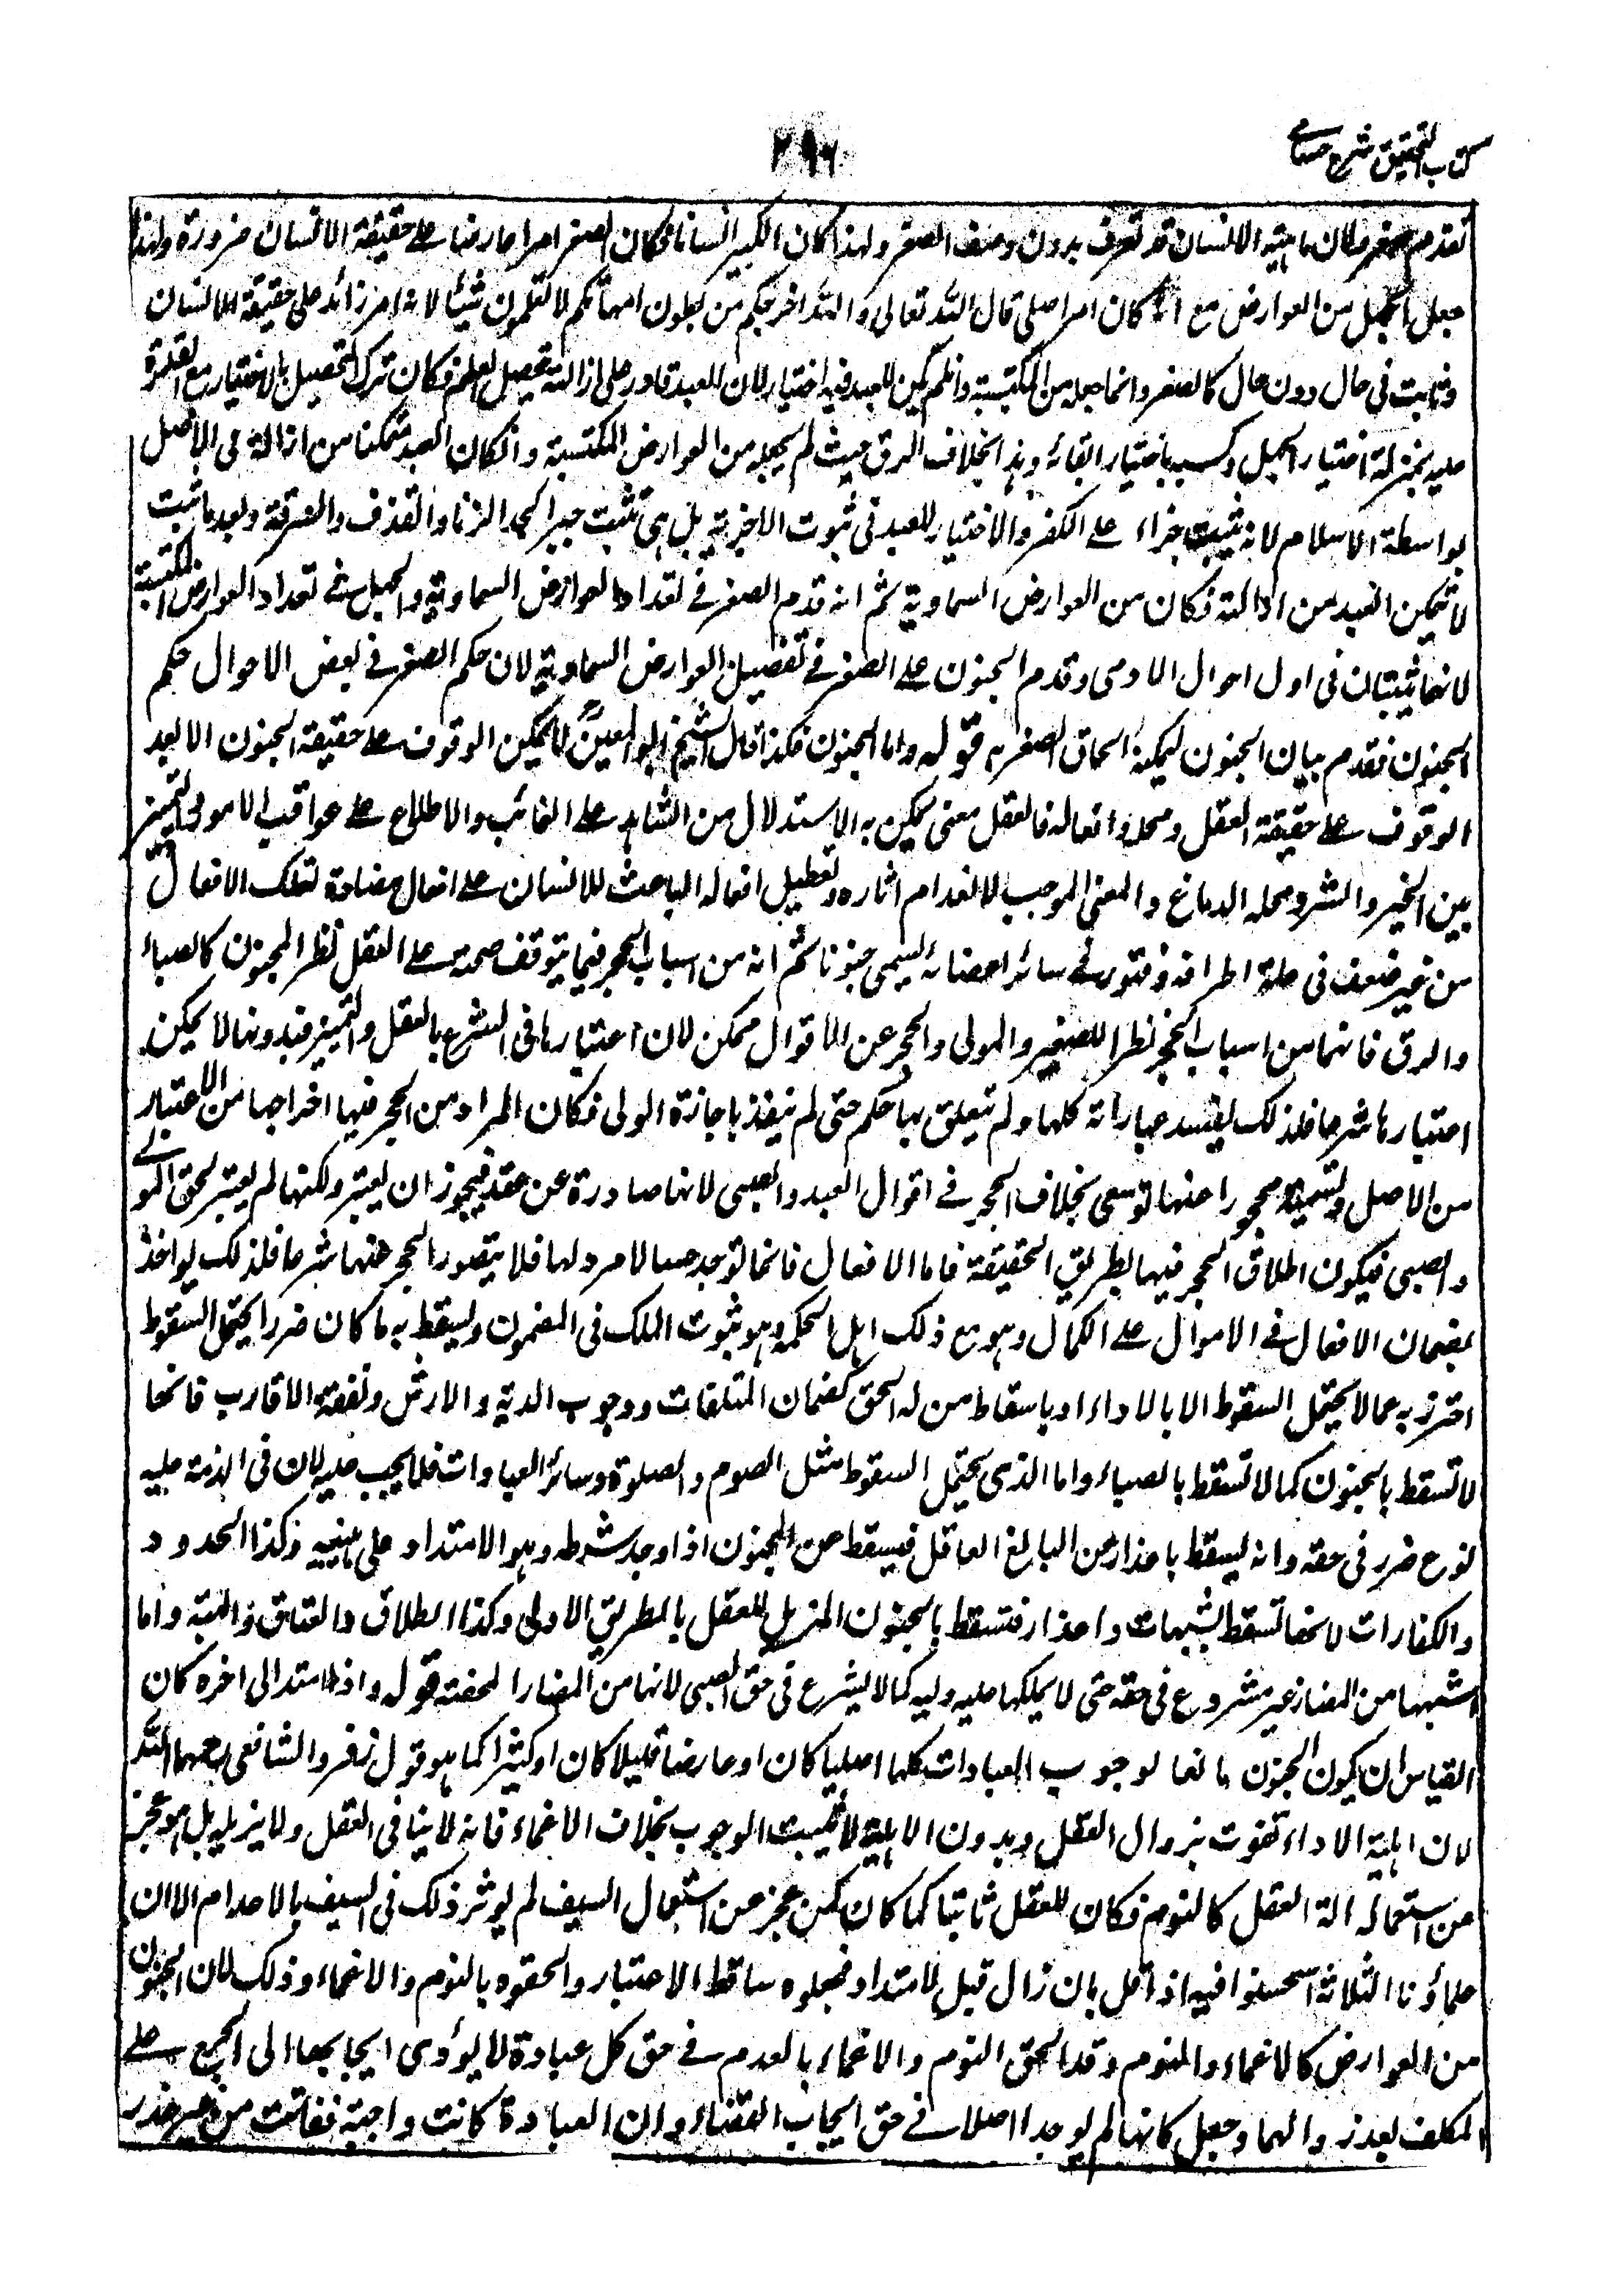 كتاب التحقيق شرح حسامى
٢٩٦
تقدم صغر ولان ماهية الانسان قد تعرف بدون وصف الصغر ولهذا كان الكبير انسانا فكان الصغر امرا عارضا على حقيقة الانسان ضرورة ولهذا
جعل الجهل من العوارض مع انه كان امر اصلى قال الله تعالى والله اخرجكم من بطون امهاتكم لا تعلمون شيئا لانه امر زائد على حقيقة الانسان
وثابت فى حال دون حال كالصغر وانما جعله من المكتسبة وان لم يكن للعبد فيه اختيار لان للعبد قادر على ازالته بتحصيل العلم فكان ترك التحصيل بالاختيار مع القدرة
عليه بمنزلة اختيار الجهل وكسبه باختيار ابقائه وهذا بخلاف الرق حيث لم يجعله من العوارض المكتسبة وان كان العبد متمكنا من ازالته فى الاصل
بواسطة الاسلام لانه يثبت جزاء على الكفر والاختيار للعبد فى ثبوت الاجزية بل هى تثبت جبرا كحد الزنا والقذف والسرقة وبعد ما ثبت
لا يتمكن العبد من ازالته فكان من العوارض السماوية ثم انه قدم الصغر فى تعداد العوارض السماوية والجهل فى تعداد العوارض المكتسبة
لانهما يثبتان فى اول احوال الادمى وقدم الجنون على الصغر فى تفصيل العوارض السماوية لان حكم الصغر فى بعض الاحوال حكم
الجنون فقدم بيان الجنون ليمكنه الحاق الصغر به قوله واما الجنون فكذا قال الشيخ ابو المعين لا يمكن الوقوف على حقيقة الجنون الا بعد
الوقوف على حقيقة العقل ومحله وافعاله فالعقل معنى يمكن به الاستدلال من الشاهد على الغائب والاطلاع على عواقب الامور والتميز
بين الخير والشر ومحله الدماغ والمعنى الموجب لانعدام اثاره وتعطيل افعاله الباعث للانسان على افعال مضادة لتلك الافعال
من غير ضعف فى عامة اطرافه وفتور فى سائر اعضائه يسمى جنونا ثم انه من اسباب الحجر فيما يتوقف صحته على العقل نظر المجنون كالصباء
والرق فانهما من اسباب الحجر نظرا للصغير والمولى والحجر عن الاقوال ممكن لان اعتبارها فى الشرع بالعقل والتميز فبدونها لا يمكن
اعتبارها شرعا فلذلك يفسد عباراته كلها ولم يتعلق بها حكم حتى لم ينفذ باجازة الولى فكان المراد من الحجر فيها اخراجها من الاعتبار
من الاصل وتسميته محجورا عنها توسعى بخلاف الحجر فى اقوال العبد والصبى لانها صادرة عن عقد فيجوز ان يعتبر ولكنها لم يعتبر لحق المولى
والصبى فيكون اطلاق الحجر فيها بطريق الحقيقة فاما الافعال فانما توجد حسا لا مرد لها فلا يتصور الحجر عنها شرعا فلذلك يواخذ
بضمان الافعال فى الاموال على الكمال وهو مع ذلك اهل الحكمه وهو ثبوت الملك فى المضمون ويسقط به ما كان ضررا يحتمل السقوط
احترز به عما لا يحتمل السقوط الا بالاداء او باسقاط من له الحق كضمان المتلفات ووجوب الدية والارش ونفقة الاقارب فانها
لا تسقط بالجنون كما لا تسقط بالصباء واما الذى يحتمل السقوط مثل الصوم والصلوة وسائر العبادات فلا يجب عليه لان فى الذمة عليه
نوع ضرر فى حقه وانه يسقط باعذار عن البالغ العاقل فيسقط عن المجنون اذا وجد شرطه وهو الامتداد على ما نبينه وكذا الحدود
والكفارات لانها تسقط بالشبهات واعذار فتسقط بالجنون المزيل للعقل بالطريق الاولى وكذا الطلاق والعتاق والهبة واما
اشبهها من المضار غير مشروع فى حقه حتى لا يملكها عليه وليه كما لا يشرع فى حق الصبى لانها من المضار المحضة قوله واذا امتد الى اخره كان
القياس ان يكون الجنون مانعا لوجوب العبادات كلها اصليا كان او عارضا قليلا كان او كثيرا كما هو قول زفر والشافعى رحمهما الله
لان اهلية الاداء تفوت بزوال العقل وبدون الاهلية لا يثبت الوجوب بخلاف الاغماء فانه لا ينافى العقل ولا يزيله بل هو عجز
من استعماله الة العقل كالنوم فكان للعقل ثابتا كما كان كمن عجز عن استعمال السيف لم يوثر ذلك فى السيف بالاعدام الا ان
علماؤنا الثلاثة استحسنوا فيه اذا قل بان زال قبل الامتداد فجعلوه ساقط الاعتبار والحقوه بالنوم والاغماء وذلك لان الجنون
من العوارض كالاغماء والنوم وقد الحق النوم والاغماء بالعدم فى حق كل عبادة لا يؤدى ايجابهما الى الحرج على
المكلف بعد زوالهما وجعل كانهما لم يوجدا اصلا فى حق ايجاب القضاء وان العبادة كانت واجبة ففاتت من غير عذر